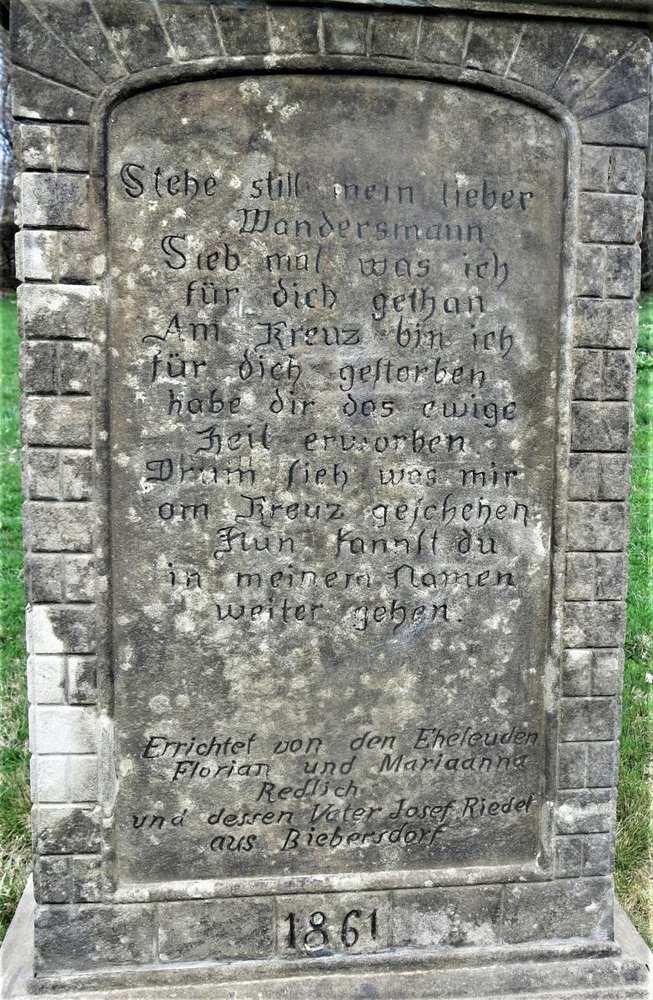 Stehe still mein lieber
Wandersmann
Sieh mal was ich
für dich gethan
Am Kreuz bin ich
für dich gestorben
habe dir das ewige
Heil erworben.
Drum sieh was mir
am Kreuz geschehen
Nun kannst du
in meinem Namen
weiter gehen.
Errichtet von den Eheleuden
Florian und Mariaanna
Redlich
und dessen Vater Josef Riedel
aus Biebersdorf
1861